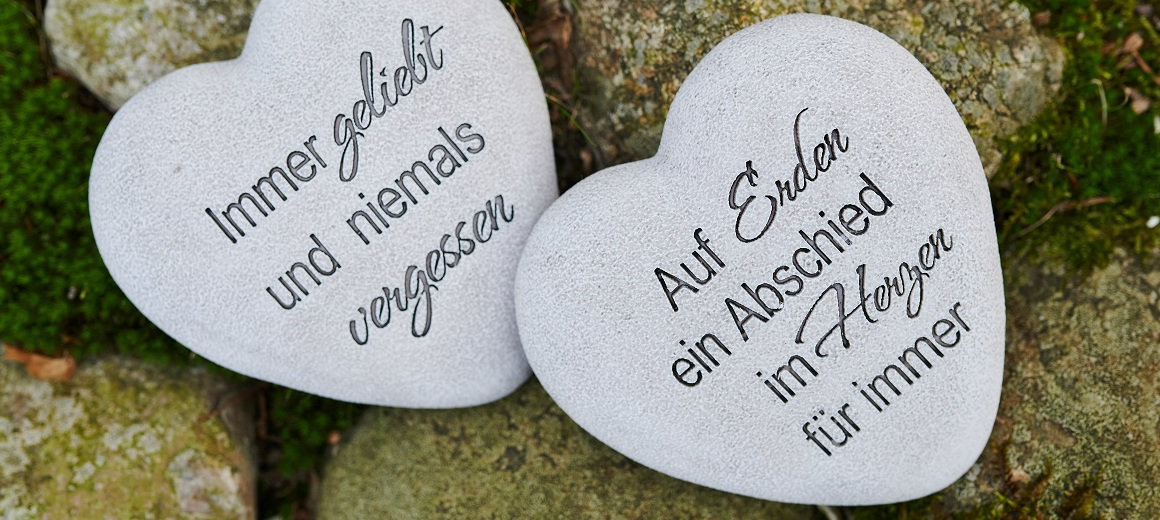 Immer geliebt
und niemals
vergessen
Auf Erden
ein Abschied
im Herzen
für immer